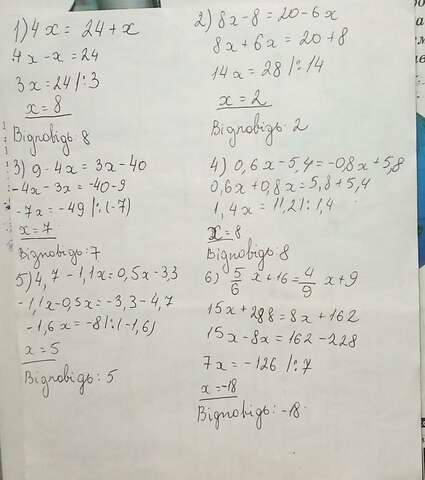 1) 4x = 24 + x
4x - x = 24
3x = 24 |:3
x = 8
Відповідь: 8
2) 8x - 8 = 20 - 6x
8x + 6x = 20 + 8
14x = 28 |:14
x = 2
Відповідь: 2
3) 9 - 4x = 3x - 40
-4x - 3x = -40 - 9
-7x = -49 |:(-7)
x = 7
Відповідь: 7
4) 0,6x - 5,4 = -0,8x + 5,8
0,6x + 0,8x = 5,8 + 5,4
1,4x = 11,2 |: 1,4
x = 8
Відповідь: 8
5) 4,7 - 1,1x = 0,5x - 3,3
-1,1x - 0,5x = -3,3 - 4,7
-1,6x = -8 |:(-1,6)
x = 5
Відповідь: 5
6) 5/6 x + 16 = 4/9 x + 9
15x + 288 = 8x + 162
15x - 8x = 162 - 228
7x = -126 |:7
x = -18
Відповідь: -18